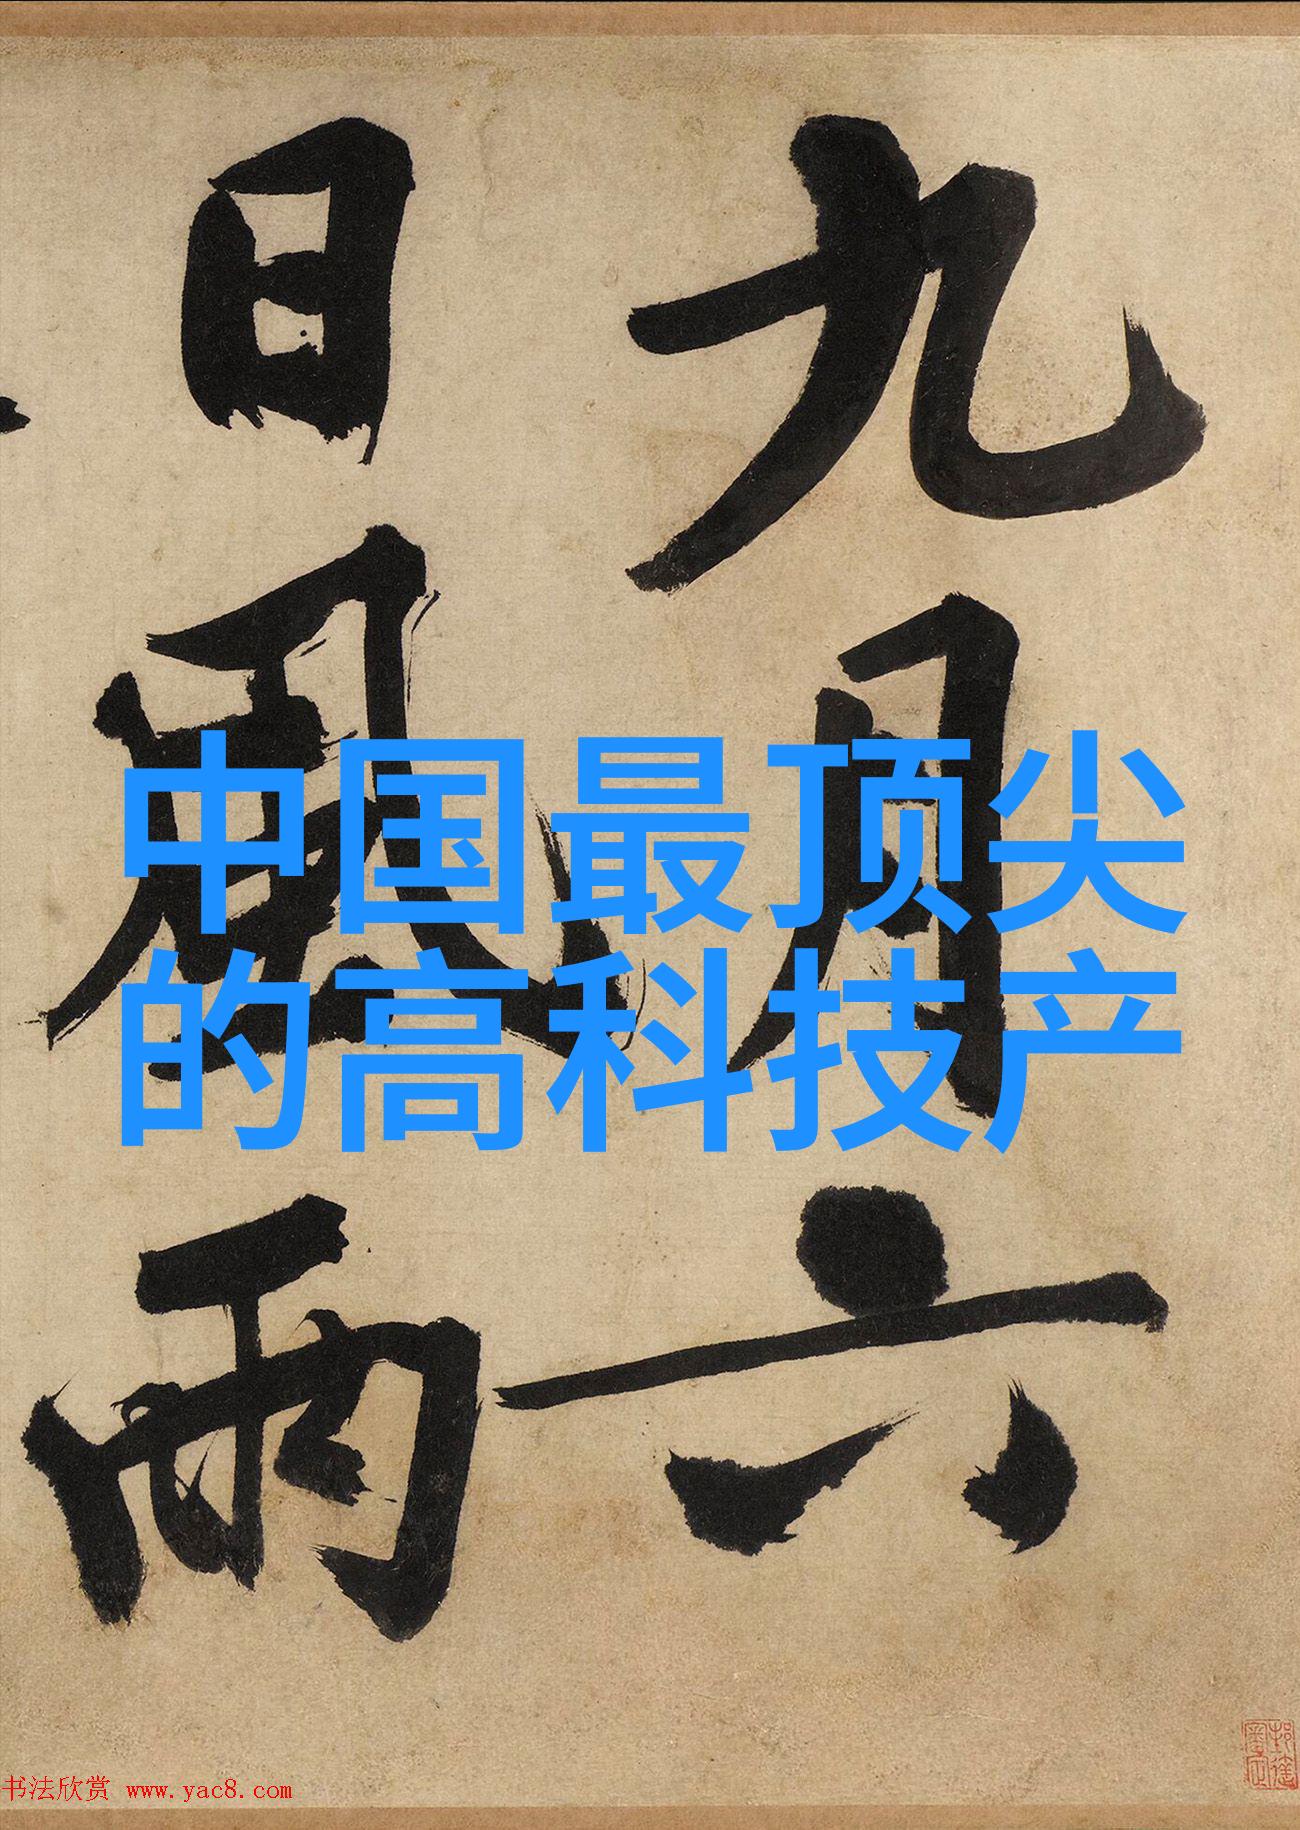 九月六
日風雨
中国最顶尖
的高科技产
书法欣赏 www.yac8.com